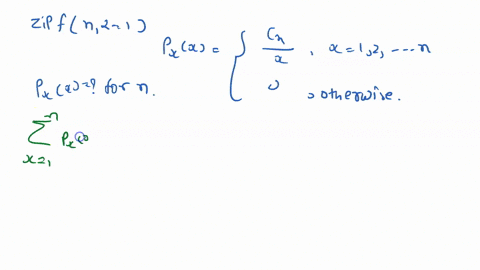 Zipf(n, α=1)
P_x(x) = { C_n/x , x=1,2, ---- n
0 , otherwise.
P_x(x)=? for n.
n∑x=1 P_x(x